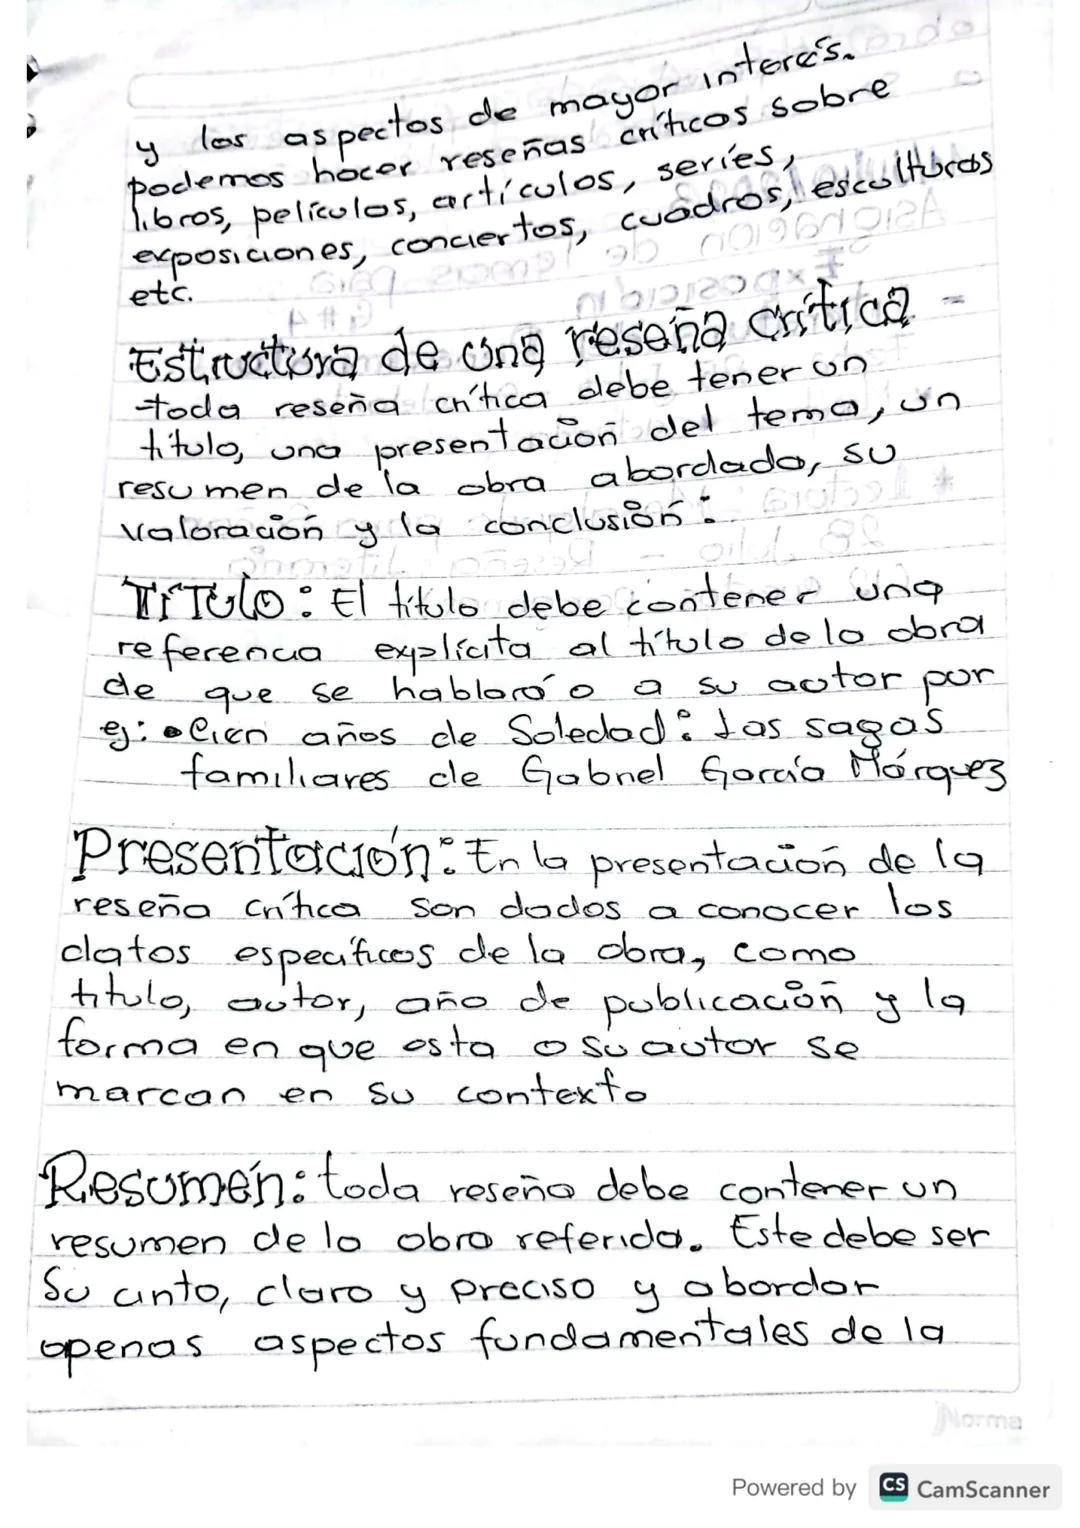 y los aspectos de mayor interés.
podemos hacer reseñas críticos sobre
libros, películas, artículos, series,
exposiciones, conciertos, cuadros, esculturas
etc.
Estructura de una reseña crítica -
toda reseña crítica debe tener un
título, una presentación del tema, un
resumen de la obra abordada, su
valoración y la conclusión:
TíTulo: El título debe contener una
referencia explícita al título de la obra
de que se hablará o a su autor por
ej: • Cien años de Soledad: las sagas
familiares de Gabriel García Márquez
Presentación: En la presentación de la
reseña crítica son dados a conocer los
datos específicos de la obra, como
título, autor, año de publicación y la
forma en que esta o su autor se
marcan en su contexto
Resumen: toda reseña debe contener un
resumen de la obra referida. Este debe ser
Su cinto, claro y preciso y abordar
apenas aspectos fundamentales de la
Norma
Powered by CS CamScanner